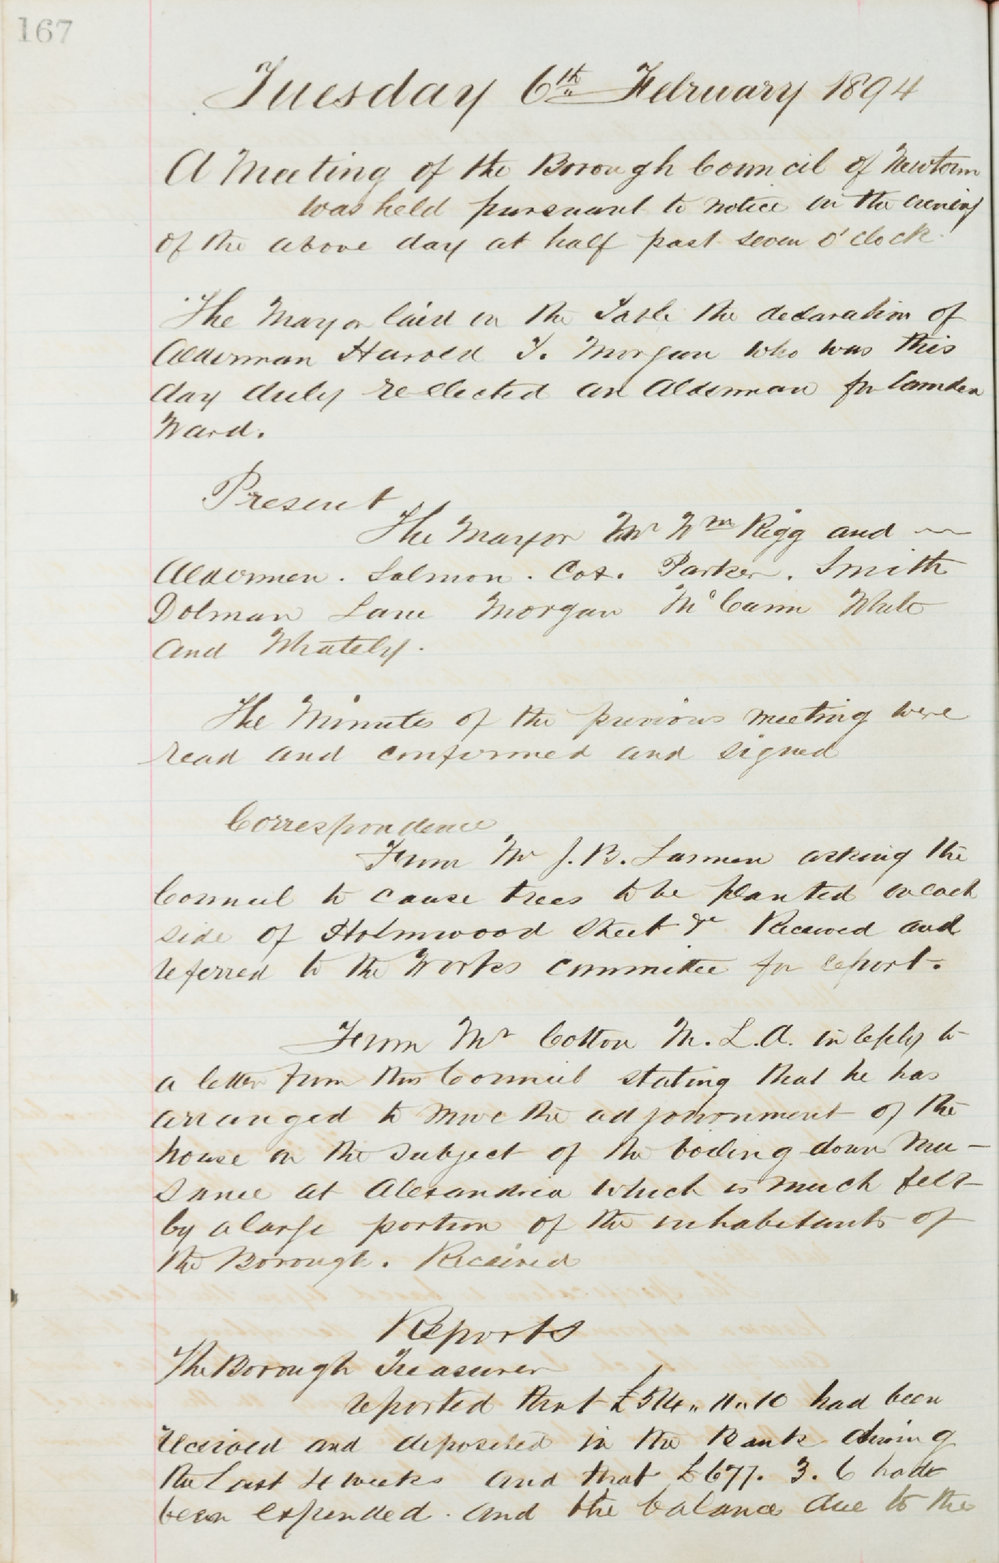 167
Tuesday 6th February 1894
A Meeting of the Borough Council of Newtown
was held pursuant to notice on the evening
of the above day at half past seven o'clock.
The Mayor laid on the Table the declaration of
Alderman Harold T. Morgan who was this
day duly re-elected an Alderman for Camden
Ward.
Present
The Mayor Mr Wm Rigg and
Aldermen. Salmon. Cox. Parker. Smith
Dolman Lane Morgan McCann White
and Whately.
The Minutes of the previous meeting were
read and confirmed and signed
Correspondence
From Mr J. B. asking the
Council to cause trees to be planted on each
side of Holmwood Street &c Received and
referred to the Works committee for report.
From Mr Cotton M.L.A. in reply to
a letter from this Council stating that he has
arranged to move the adjournment of the
house on the subject of the boiling down nui-
sance at Alexandria which is much felt
by a large portion of the inhabitants of
the Borough. Received
Reports
The Borough Treasurer
reported that £514.11.10 had been
received and deposited in the Bank during
the last 4 weeks and that £677.3.6 had
been expended. and the balance due to the